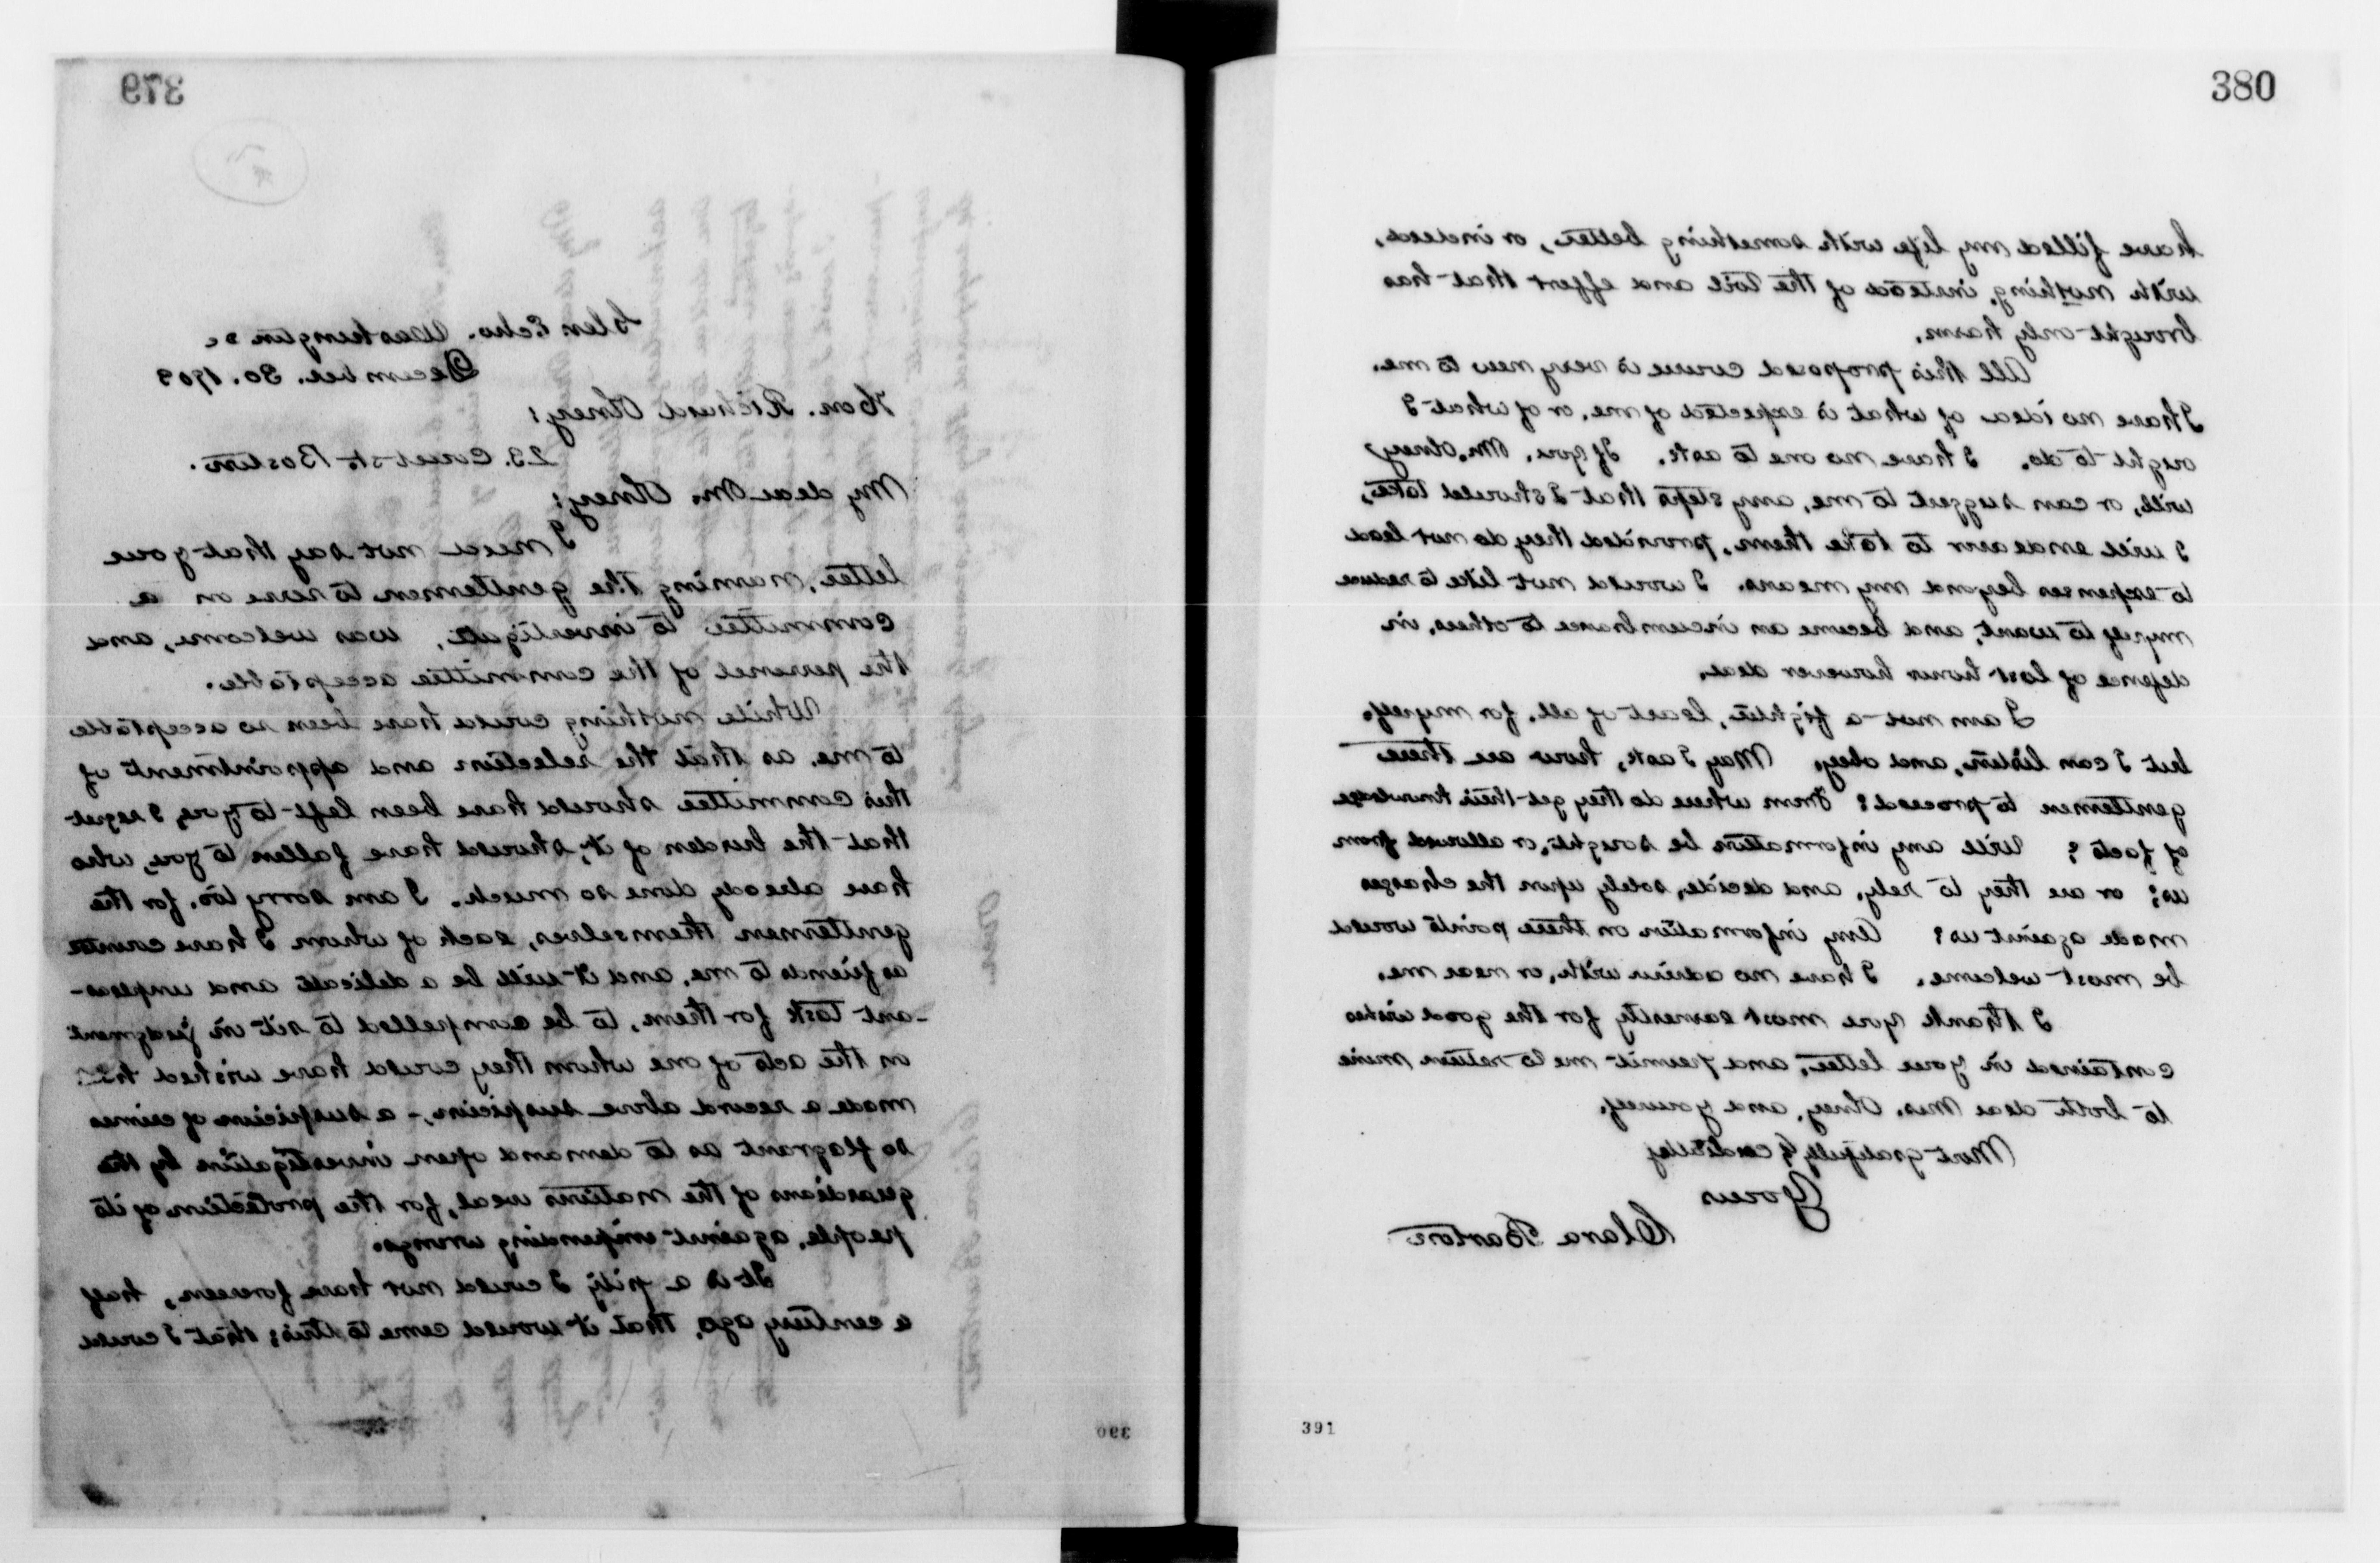 379
Glen Echo. Washington D C
December. 30. 1903
Hon. Richard Olney;
23. Court st. Boston.
My dear Mr. Olney;
I need not say that your
letter, naming the gentlemen to serve on a
committee to investigate, was welcome, and
the personel of the committee acceptable.
While nothing could have been so acceptable
to me, as that the selection and appointment of
this committee should have been left to you, I regret
that the burden of it, should have fallen to you, who
have already done so much. I am sorry too, for the
gentlemen themselves, each of whom I have counted
as friends to me, and it will be a delicate and unpleas-
-ant task for them, to be compelled to sit in judgment
on the acts of one whom they could have wished had
made a record above suspicion, - a suspicion of crimes
so flagrant as to demand open investigation by the
guardians of the nations weal, for the protection of its
people, against impending wrongs.
It is a pity I could not have foreseen, half
a century ago, that it would come to this; that I could
390
380
have filled my life with something better, or indeed,
with nothing, instead of the toil and effort that has
brought only harm.
All this proposed course is very new to me.
I have no idea of what is expected of me, or of what I
ought to do. I have no one to ask. If you, Mr. Olney
will, or can suggest to me, any steps that I should take,
I will endeavor to take them, provided they do not lead
to expenses beyond my means. I would not like to reduce
myself to want, and become an incumbrance to others, in
defence of lost honor however dear.
I am not a fighter, least of all, for myself.
but I can listen, and obey. May I ask, how are these
gentlemen to proceed? From where do they get their knowledge
of facts? Will any information be sought, or allowed from
us; or are they to rely, and decide, solely upon the charges
made against us? Any information on these points would
be most welcome. I have no advisor with, or near me.
I thank you most earnestly for the good wishes
contained in your letter, and permit me to return mine
to both dear Mrs. Olney, and yourself.
Most gratefully & cordially
Yours
Clara Barton
391